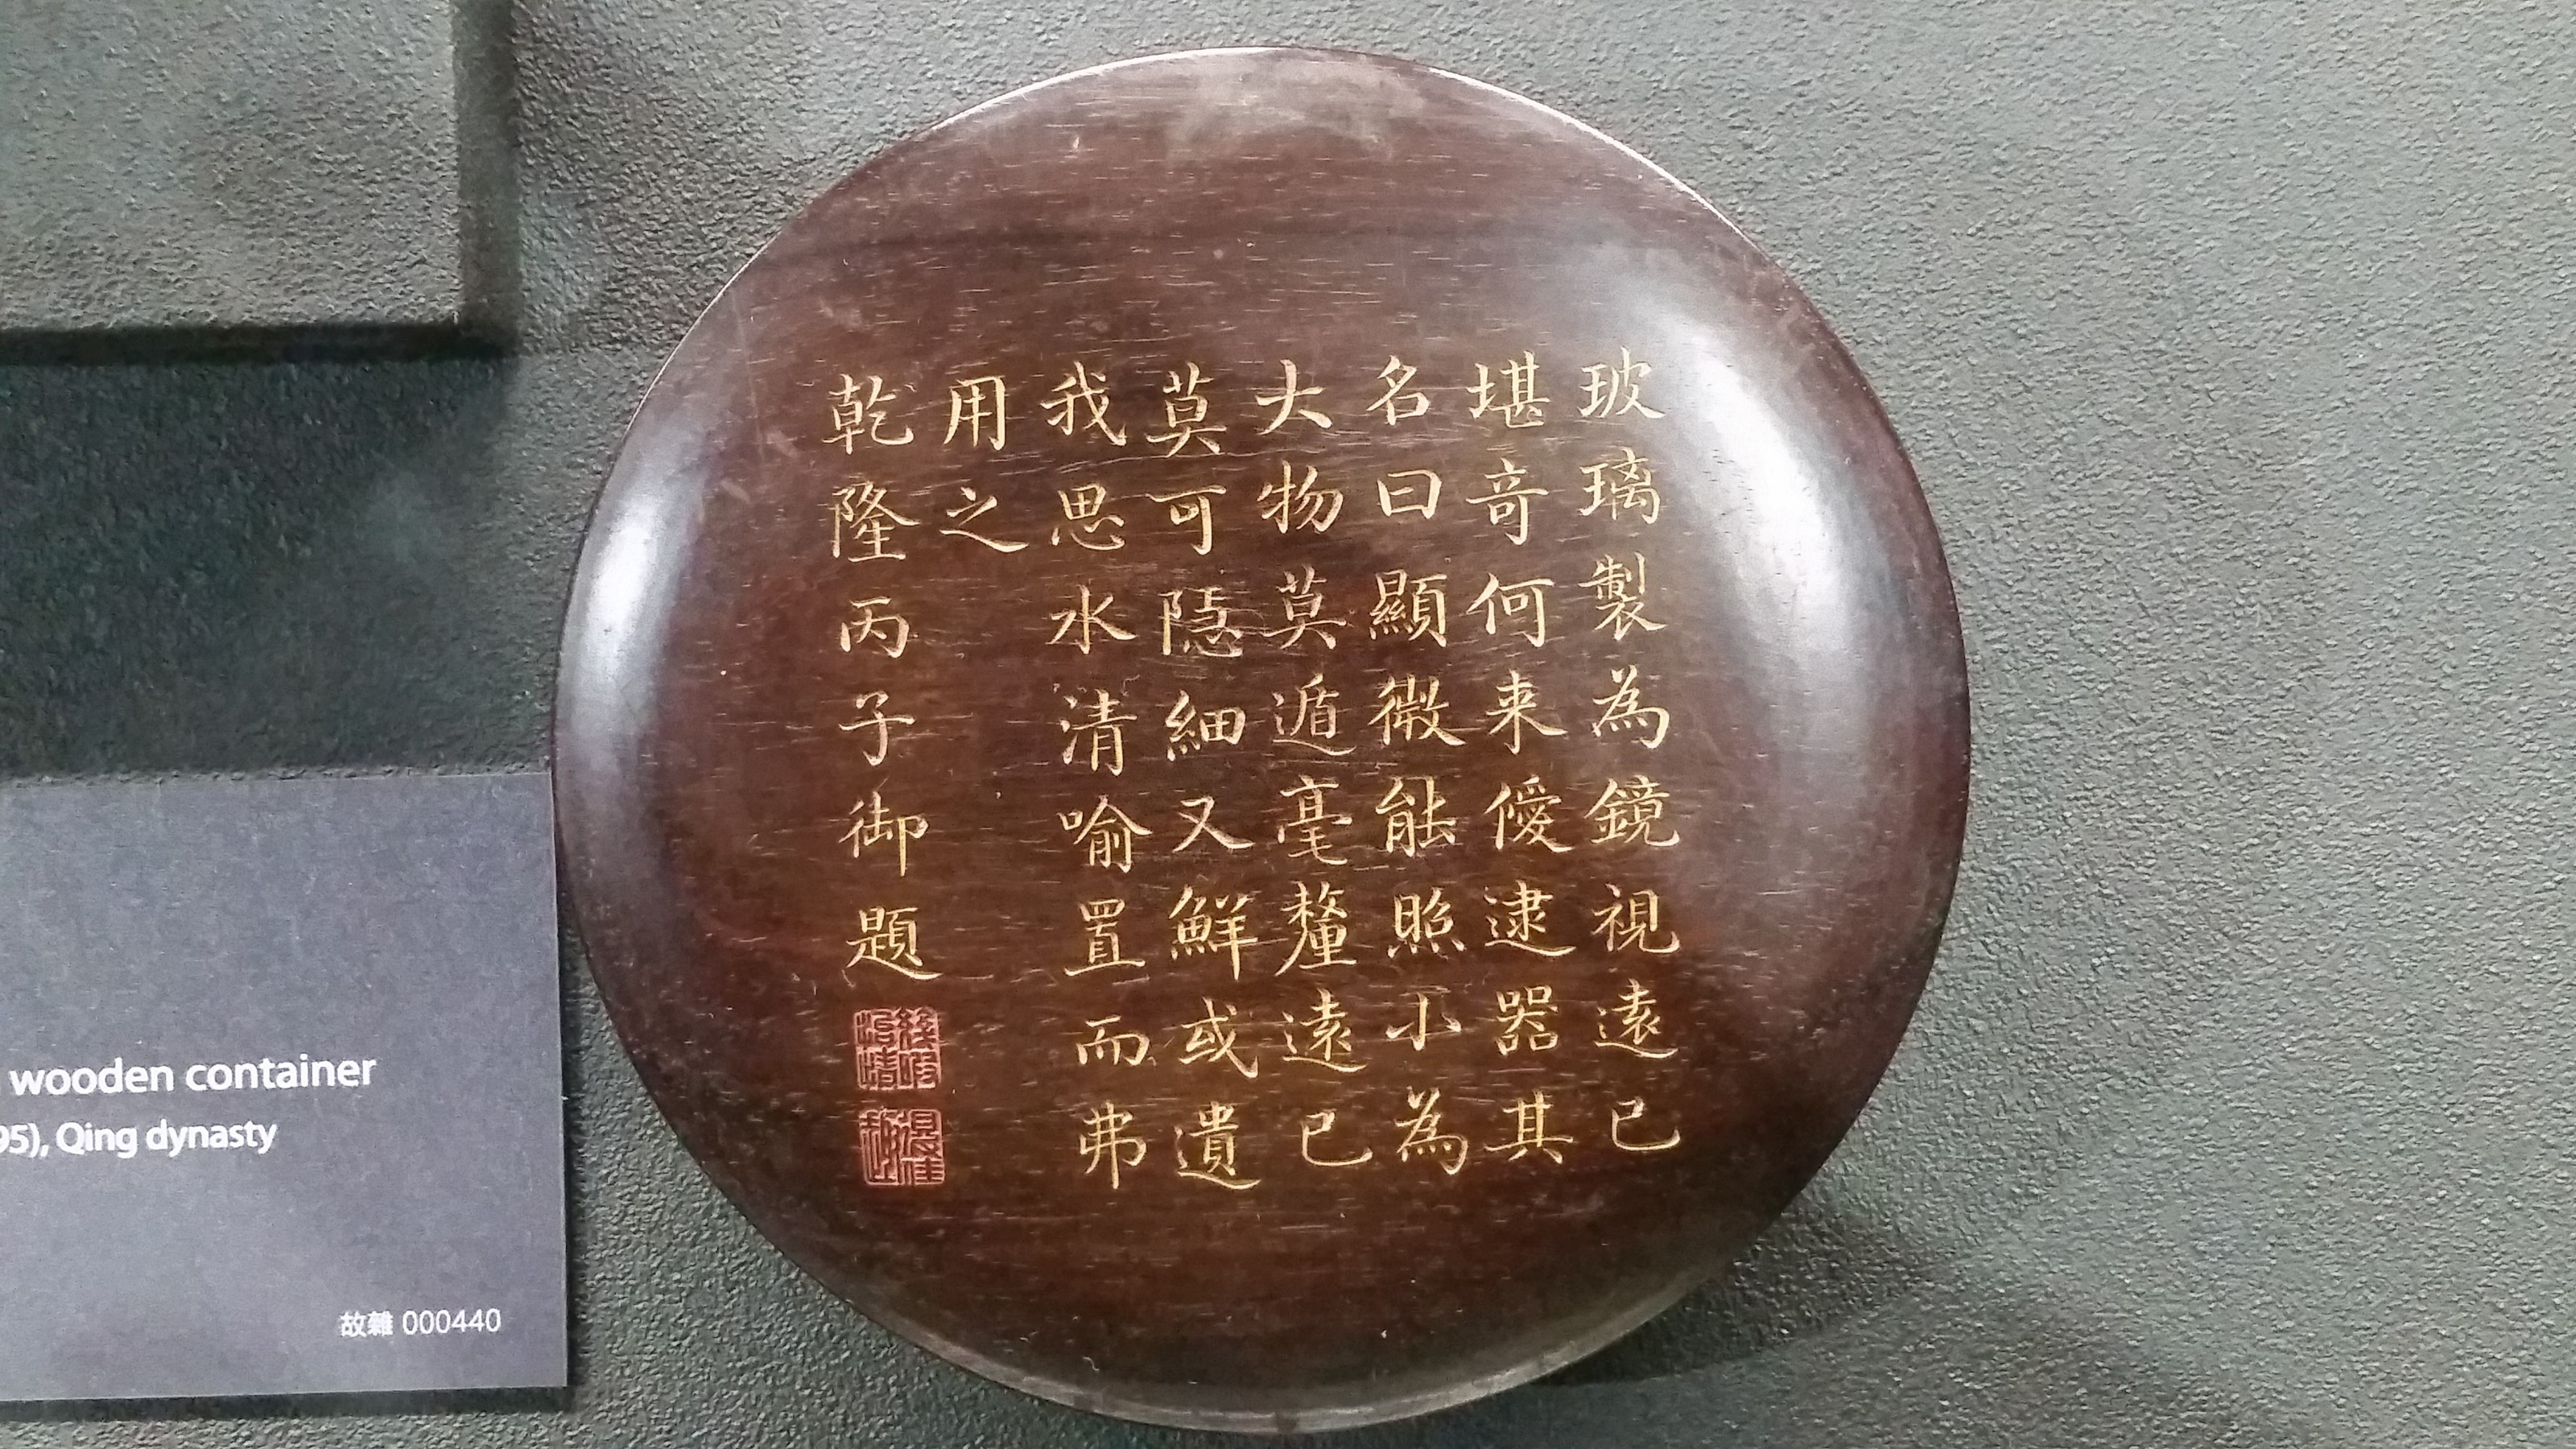 玻璃製為鏡視遠已
堪竒何来僾逮器其
名曰顯微能照小為
大物莫遁毫釐遠已
莫可隠細又鮮或遺
我思水清喻置而弗
用之
乾隆丙子御題
wooden container
95), Qing dynasty
故雜 000440